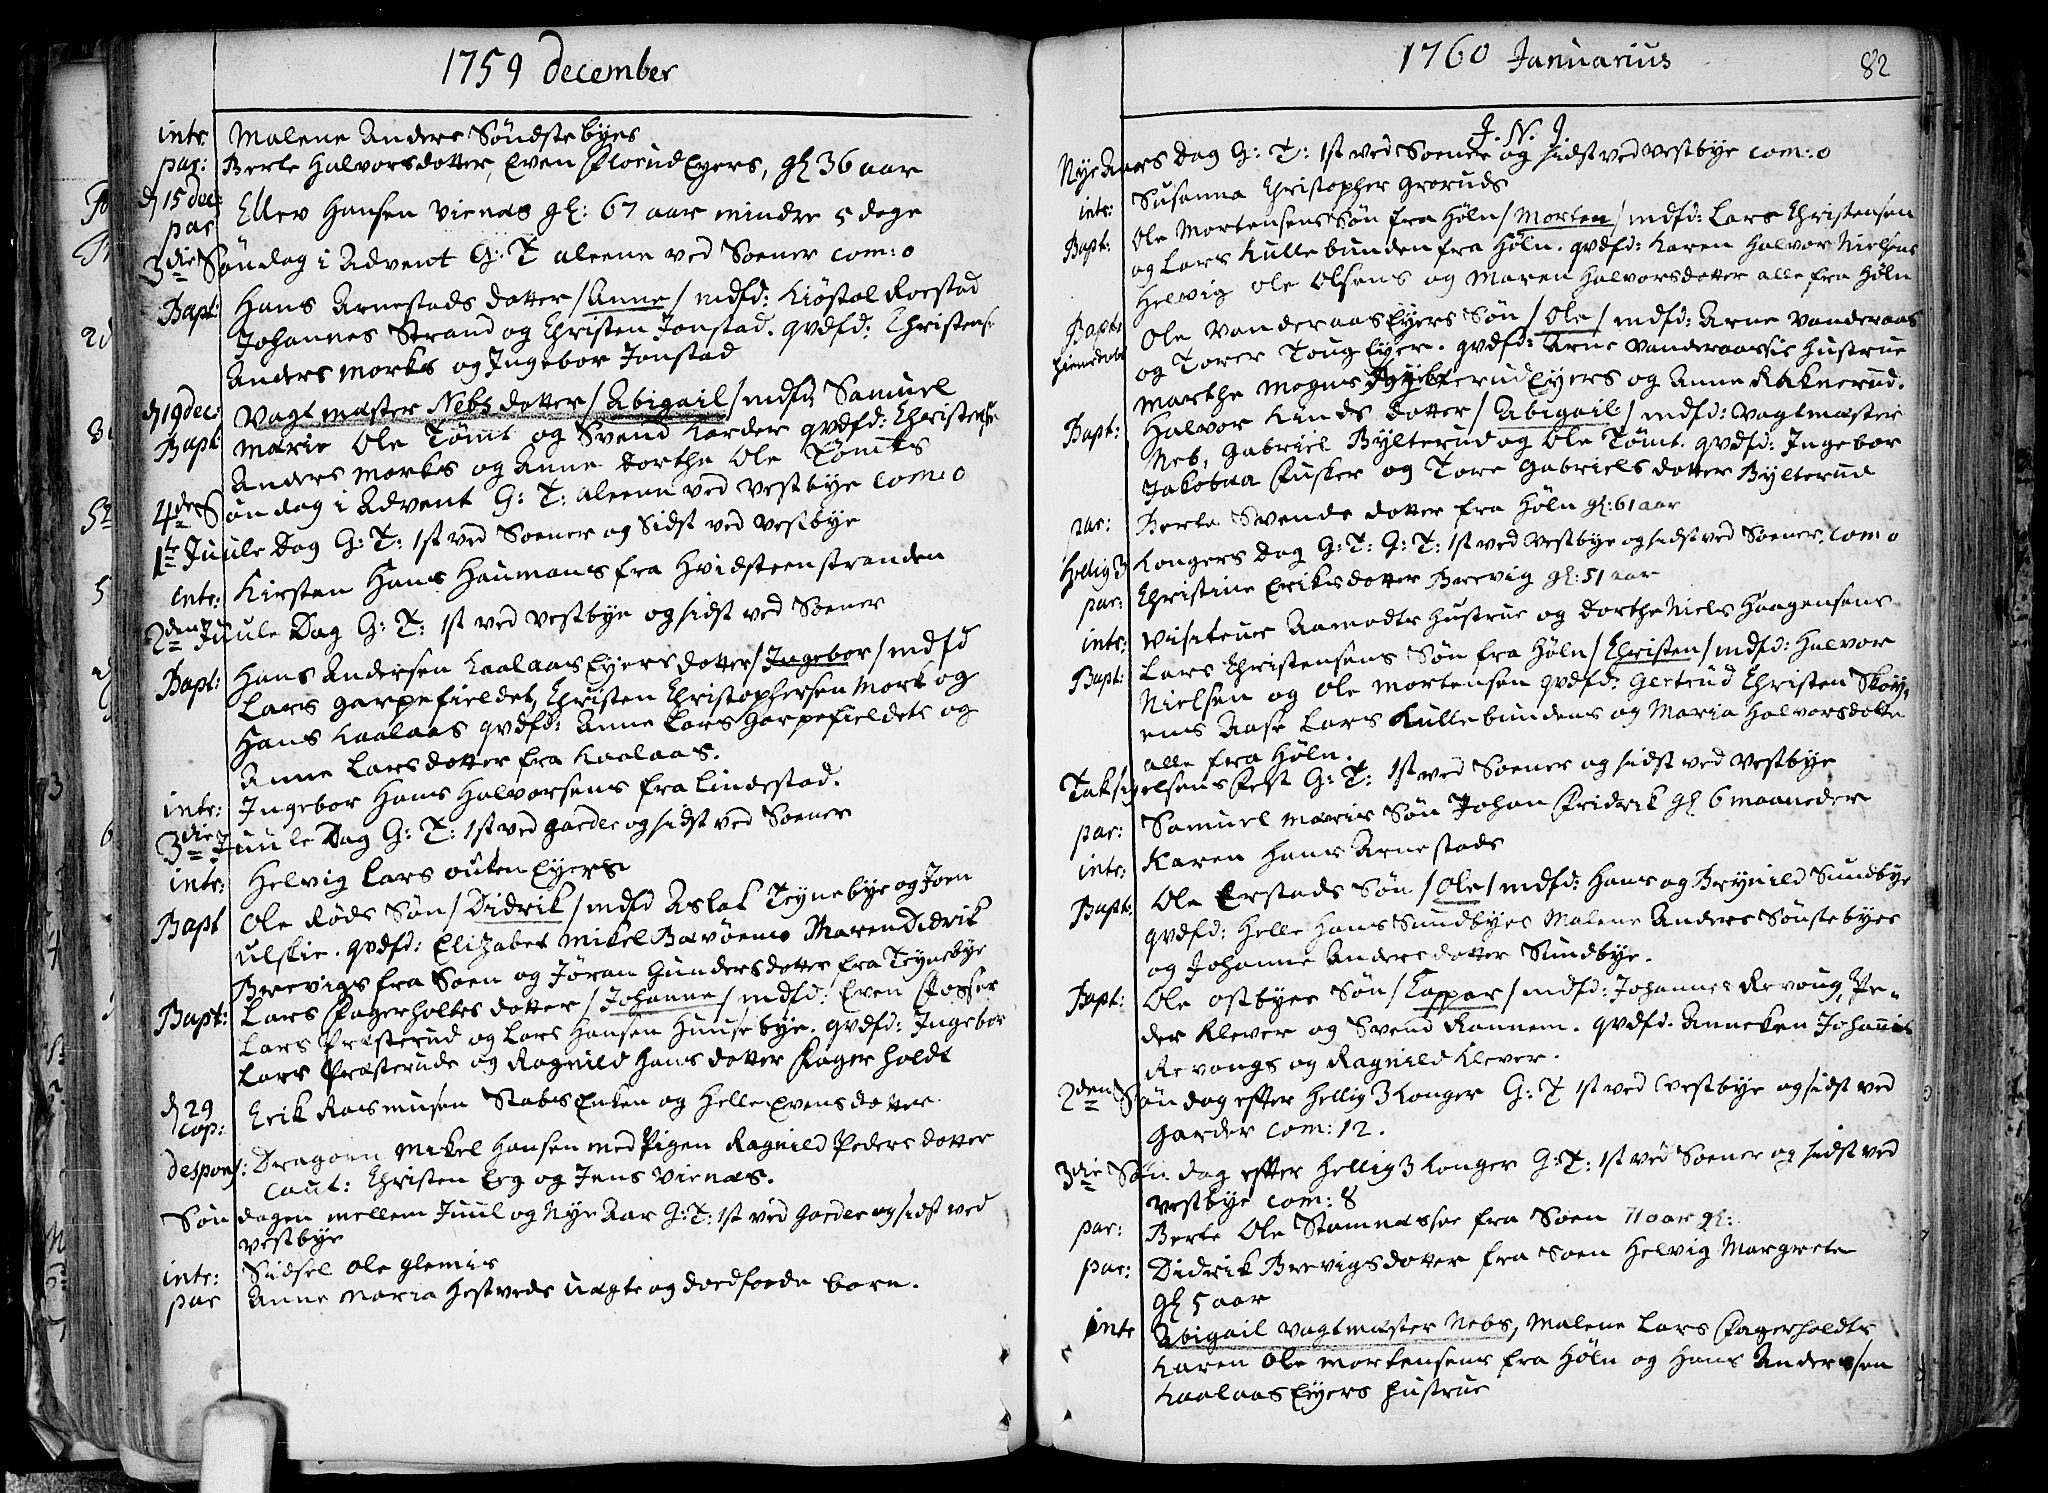 1759 December
intr: Malene Anders Søndstebyes
par: Berte Halvorsdotter, Even Floerud Eyers, gl 36 aar
d 15 dec: par Ellev Hansen Vienæs gl: 67 aar mindre 5 dage
3die Søndag i Advent G: T aleene ved Soener com: 0
Bapt: Hans Arnestads dotter / Anne / mdfd: Kiøstol Roestad
Johannes Strand og Christen Jonstad. qvdfd: Christense
Anders Morks og Ingebor Jonstad
d 19 dec: Vagtmæster Nebs dotter / Abigail / mdfd Samuel
Bapt: Marie Ole Tømt og Svend Korder qvdfd: Christense
Anders Morks og Anne Dorthe Ole Tømts
4de Søndag i Advent G: T: aleene ved Vestbye com: 0
1te Juule Dag G: T: 1st ved Soener og Sidst ved Vestbye
intr: Kirsten Hans Haumans fra Hvidsteenstranden
2den Juule Dag G: T: 1st ved Vestbye og sidst ved Soener
Bapt: Hans Andersen Kaalaas Eyers dotter / Ingebor / mdfd
Lars Garpefieldet, Christen Christophersen Mork og
Hans Kaalaas qvdfd: Anne Lars Garpefieldets og
Anne Larsdotter fra Kaalaas.
intr: Ingebor Hans Halvorsens fra Lindestad.
3die Juule Dag G: T: 1st ved Garder og sidst ved Soener
intr: Helvig Lars outen Eyers
Bapt Ole Røds Søn / Didrik / mdfd Aslak Teynebye og Joen
Ulskie. qvdfd: Elizabet Mikel Bævøens Maren Didrik
Brevigs fra Soen og Jøran Gundersdotter fra Teynebye
Bapt: Lars Fagerholtes dotter / Johanne / mdfd: Even Fosser
Lars Præsterud og Lars Hansen Huusebye. qvdfd: Ingebor
Lars Præsteruds og Ragnild Hansdotter Fagerholdt
d 29 cop: Erik Rasmusen Stabs Enken og Helle Evensdotter
despons: Dragoen Mikel Hansen med Pigen Ragnild Pedersdotter
Caut: Christen Erg og Jens Vienæs.
Søndagen mellem Juul og Nye Aar G: T: 1st ved Garder og sidst ved
Vestbye
intr: Sidsel Ole Glemis
par Anne Maria Hestveds uægte og dødfødde barn.
1760 Januarius
82
J. N. J.
Nye Aars Dag G: T: 1st ved Soener og sidst ved Vestbye com: 0
intr: Susanna Christopher Groruds
Bapt: Ole Mortensens Søn fra Høln / Morten / mdfd: Lars Christensen
og Lars Kullebunden fra Høln. qvdfd: Karen Halvor Nielsens
Helvig Ole Olsens og Maren Halvorsdotter alle fra Høln
Bapt: Ole Vanderaas Eyers Søn / Ole / mdfd: Arne Vanderaas
hiemdøbt og Torer Toug Eyer. qvdfd: Arne Vanderaasis Hustrue
Marthe Mogns Eyers og Anne Raknerud.
Bapt: Halvor Kinds dotter / Abigail / mdfd: Vagtmæster
Neb, Gabriel Bylterud og Ole Tømt. qvdfd: Ingebor
Jakobaa Fusker og Tore Gabriels dotter Bylterud
par: Berte Svends dotter fra Høln gl: 61 aar
Hellig 3 Kongers Dag G: T: G: T: 1st ved Vestbye og sidst ved Soener. com 0
par: Christine Eriksdotter Brevig gl: 51 aar
intr: Visiteur Aamodts Hustrue og Dorthe Niels Haagensens
Bapt: Lars Christensens Søn fra Høln / Christen / mdfd: Halvor
Nielsen og Ole Mortensen qvdfd: Gertrud Christen Skøy,
ens Aase Lars Kullebundens og Maria Halvorsdotter
alle fra Høln.
Taksigelsens Fest G: T: 1st ved Soener og sidst ved Vestbye
par: Samuel Maris Søn Johan Fridrik gl 6 maaneder
intr: Karen Hans Arnestads
Bapt: Ole Erstads Søn / Ole / mdfd: Hans og Brynild Sundbye
qvdfd: Helle Hans Sundbyes Malene Anders Sønstebyes
og Johanne Andersdotter Sundbye.
Bapt: Ole Ostbyes Søn / Casper / mdfd: Johannes Revoug, Pe-
der Klever og Svend Rannem. qvdfd. Anneken Johannis
Revougs og Ragnild Klever.
2den Søndag efter Hellig 3 Konger G: T 1st ved Vestbye og sidst ved
Garder com: 12.
3die Søndag efter Hellig 3 Konger G: T: 1st ved Soener og sidst ved
Vestbye com: 8
par: Berte Ole Stamnæsse fra Soen 71 aar gl:
par: Didrik Brevigs dotter fra Soen Helvig Margrete
gl 5 aar
intr Abigail Vagtmæster Nebs, Malene Lars Fagerholdts
Karen Ole Mortensens fra Høln og Hans Anderssen
Kaalaas Eyers Hustrue